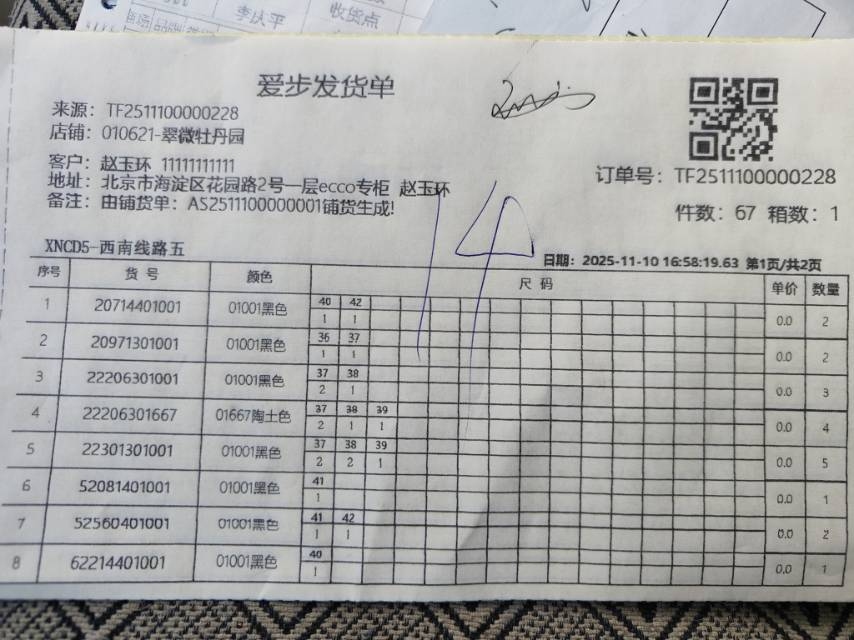 李庆平
收货点
爱步发货单
来源：TF2511100000228
店铺：010621-翠微牡丹园
客户：赵玉环 11111111111
地址：北京市海淀区花园路2号一层ecco专柜 赵玉环
备注：由铺货单：AS2511100000001铺货生成!
订单号：TF2511100000228
件数：67 箱数：1
14
XNCD5-西南线路五
日期：2025-11-10 16:58:19.63 第1页/共2页
序号 货 号 颜色 尺 码 单价 数量
40 42
1 20714401001 01001黑色 0.0 2
1 1
36 37
2 20971301001 01001黑色 0.0 2
1 1
37 38
3 22206301001 01001黑色 0.0 3
2 1
37 38 39
4 22206301667 01667陶土色 0.0 4
2 1 1
37 38 39
5 22301301001 01001黑色 0.0 5
2 2 1
41
6 52081401001 01001黑色 0.0 1
1
41 42
7 52560401001 01001黑色 0.0 2
1 1
40
8 62214401001 01001黑色 0.0 1
1